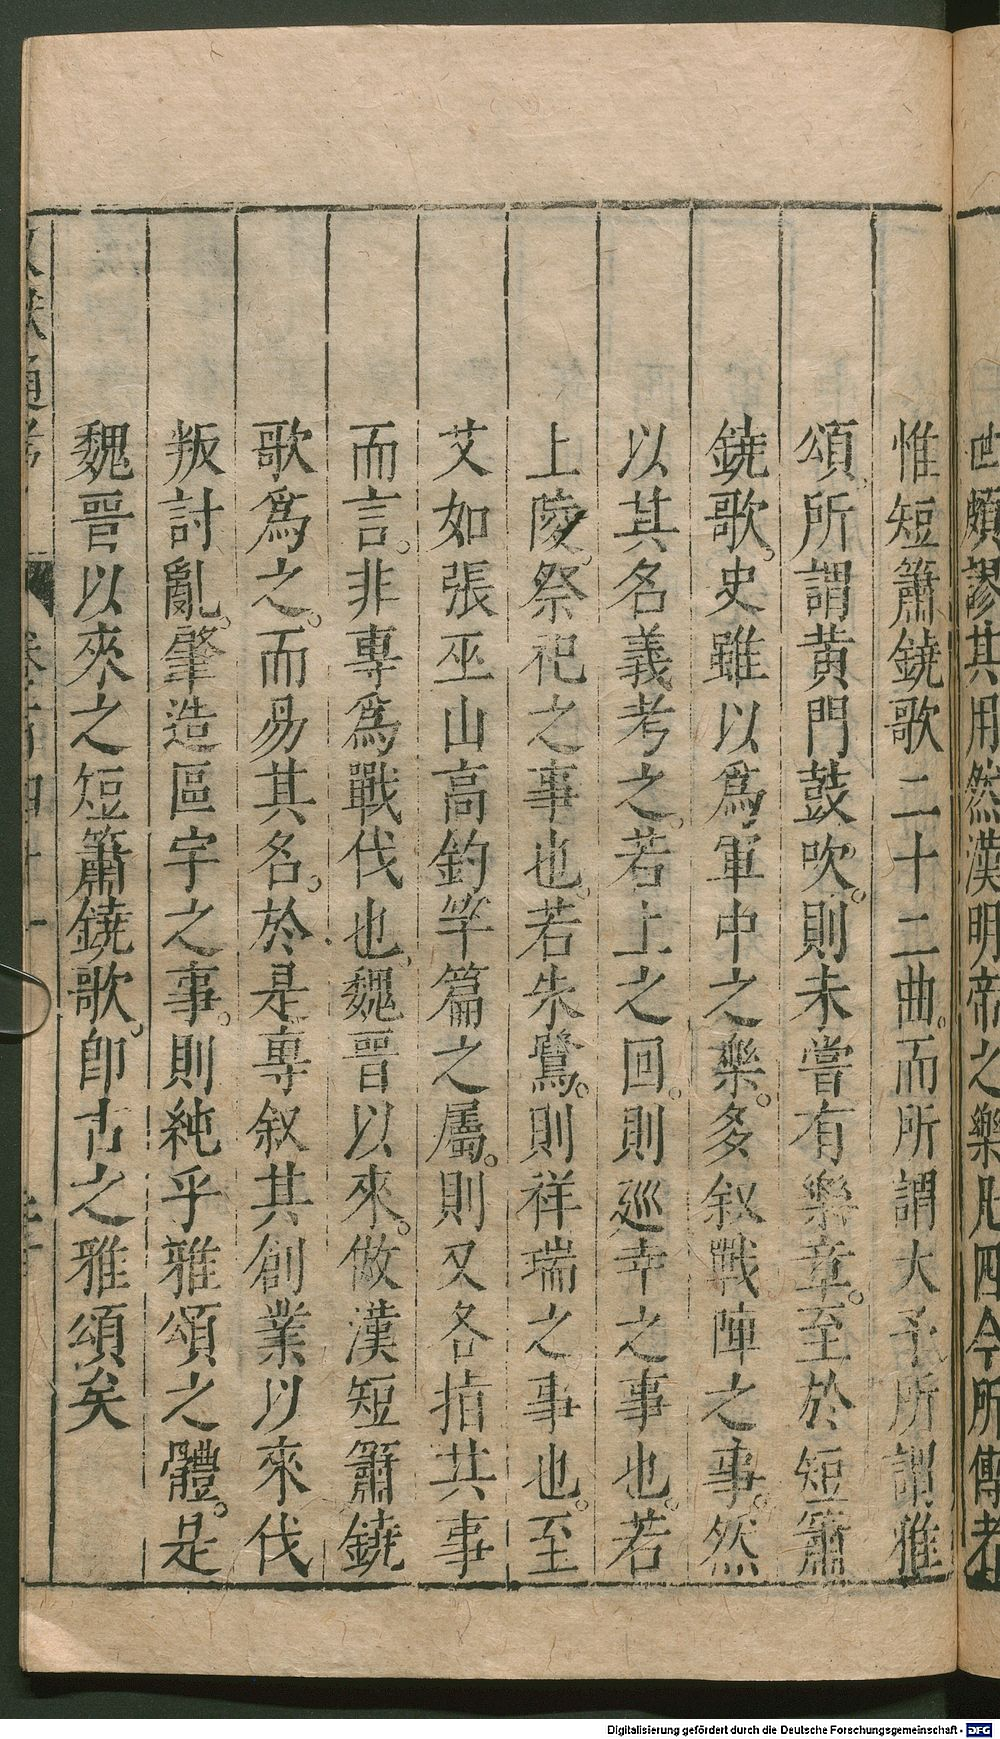 世頗謬其用然漢明帝之樂凡四今所傳者
惟短簫鐃歌二十二曲。而所謂大予所謂雅
頌。所謂黄門鼓吹。則未嘗有樂章。至於短簫
鐃歌。史雖以爲軍中之樂。多叙戰陣之事。然
以其名義考之。若上之回。則廵幸之事也。若
上陵。祭祀之事也。若朱鷺。則祥瑞之事也。至
艾如張巫山高釣竿篇之屬。則又各指其事
而言。非專爲戰伐也。魏晉以來。倣漢短簫鐃
歌爲之。而易其名。於是專叙其創業以來伐
叛討亂。肇造區宇之事。則純乎雅頌之體。是
魏晉以來之短簫鐃歌。即古之雅頌矣
文獻通考 卷百四十一
Digitalisierung gefördert durch die Deutsche Forschungsgemeinschaft - DFG